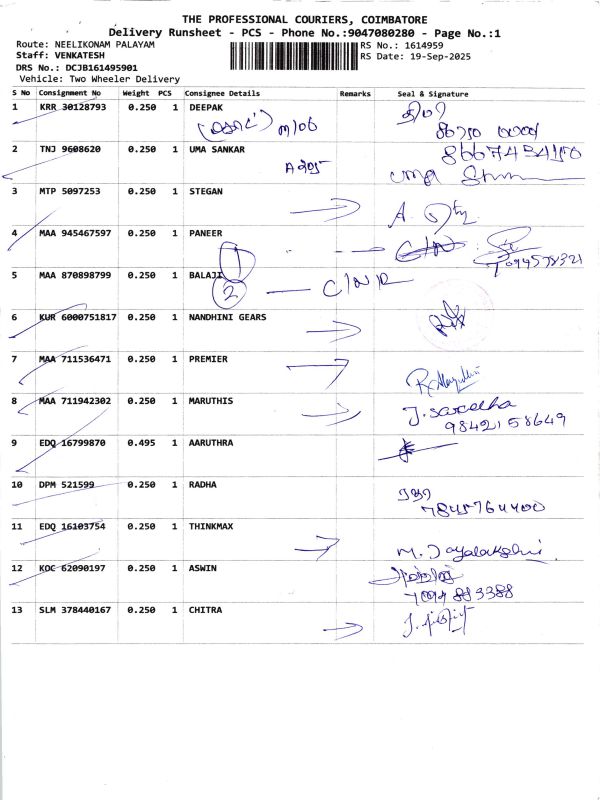 THE PROFESSIONAL COURIERS, COIMBATORE
Delivery Runsheet - PCS - Phone No.:9047080280 - Page No.:1
Route: NEELIKONAM PALAYAM
RS No.: 1614959
Staff: VENKATESH
RS Date: 19-Sep-2025
DRS No.: DCJB161495901
Vehicle: Two Wheeler Delivery
S No Consignment No Weight PCS Consignee Details Remarks Seal & Signature
1 KRR 30128793 0.250 1 DEEPAK
2 TNJ 9608620 0.250 1 UMA SANKAR
8667434150
uma
3 MTP 5097253 0.250 1 STEGAN
A.
4 MAA 945467597 0.250 1 PANEER
1
5 MAA 870898799 0.250 1 BALAJI
2 C/N R
6 KUR 6000751817 0.250 1 NANDHINI GEARS
7 MAA 711536471 0.250 1 PREMIER
8 MAA 711942302 0.250 1 MARUTHIS
J. sareetha
9842158649
9 EDQ 16799870 0.495 1 AARUTHRA
10 DPM 521599 0.250 1 RADHA
7845764400
11 EDQ 16103754 0.250 1 THINKMAX
M. Jayalakshmi
12 KOC 62090197 0.250 1 ASWIN
7094883388
13 SLM 378440167 0.250 1 CHITRA